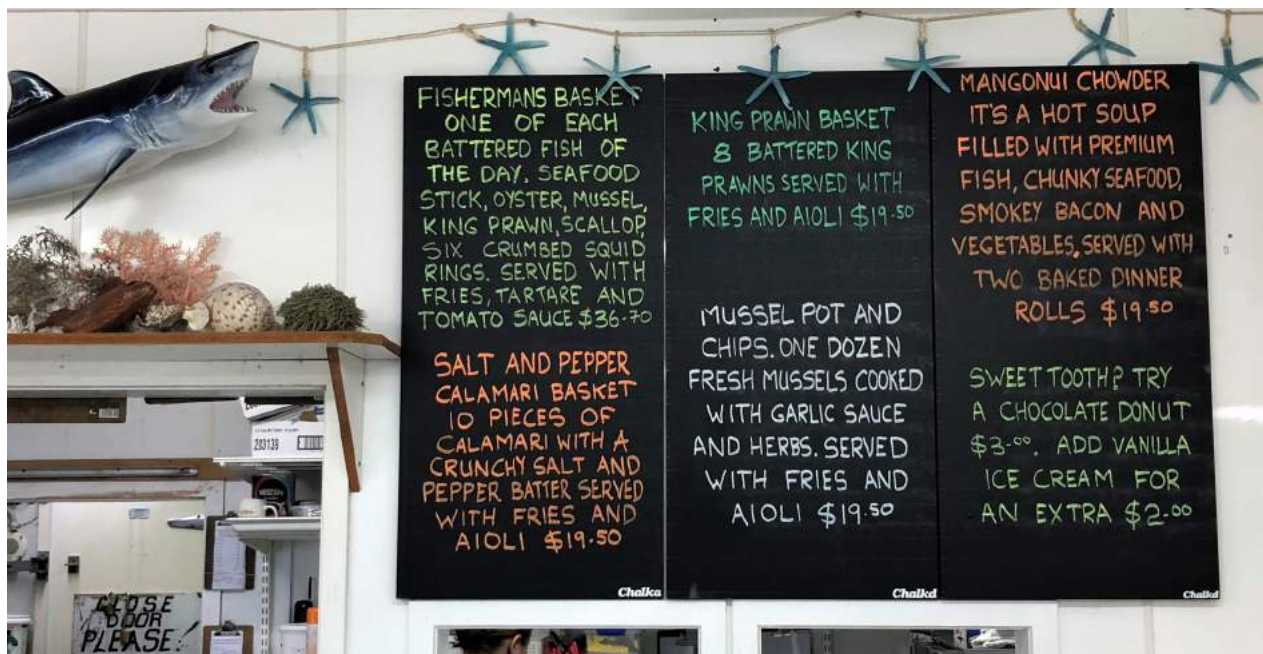 FISHERMANS BASKET
ONE OF EACH
BATTERED FISH OF
THE DAY. SEAFOOD
STICK, OYSTER, MUSSEL,
KING PRAWN, SCALLOP,
SIX CRUMBED SQUID
RINGS. SERVED WITH
FRIES, TARTARE AND
TOMATO SAUCE $36.70
SALT AND PEPPER
CALAMARI BASKET
10 PIECES OF
CALAMARI WITH A
CRUNCHY SALT AND
PEPPER BATTER SERVED
WITH FRIES AND
AIOLI $19.50
Chalkd
KING PRAWN BASKET
8 BATTERED KING
PRAWNS SERVED WITH
FRIES AND AIOLI $19.50
MUSSEL POT AND
CHIPS. ONE DOZEN
FRESH MUSSELS COOKED
WITH GARLIC SAUCE
AND HERBS. SERVED
WITH FRIES AND
AIOLI $19.50
Chalkd
MANGONUI CHOWDER
IT'S A HOT SOUP
FILLED WITH PREMIUM
FISH, CHUNKY SEAFOOD,
SMOKEY BACON AND
VEGETABLES. SERVED WITH
TWO BAKED DINNER
ROLLS $19.50
SWEET TOOTH? TRY
A CHOCOLATE DONUT
$3.00. ADD VANILLA
ICE CREAM FOR
AN EXTRA $2.00
Chalkd
283139
CLOSE
DOOR
PLEASE!